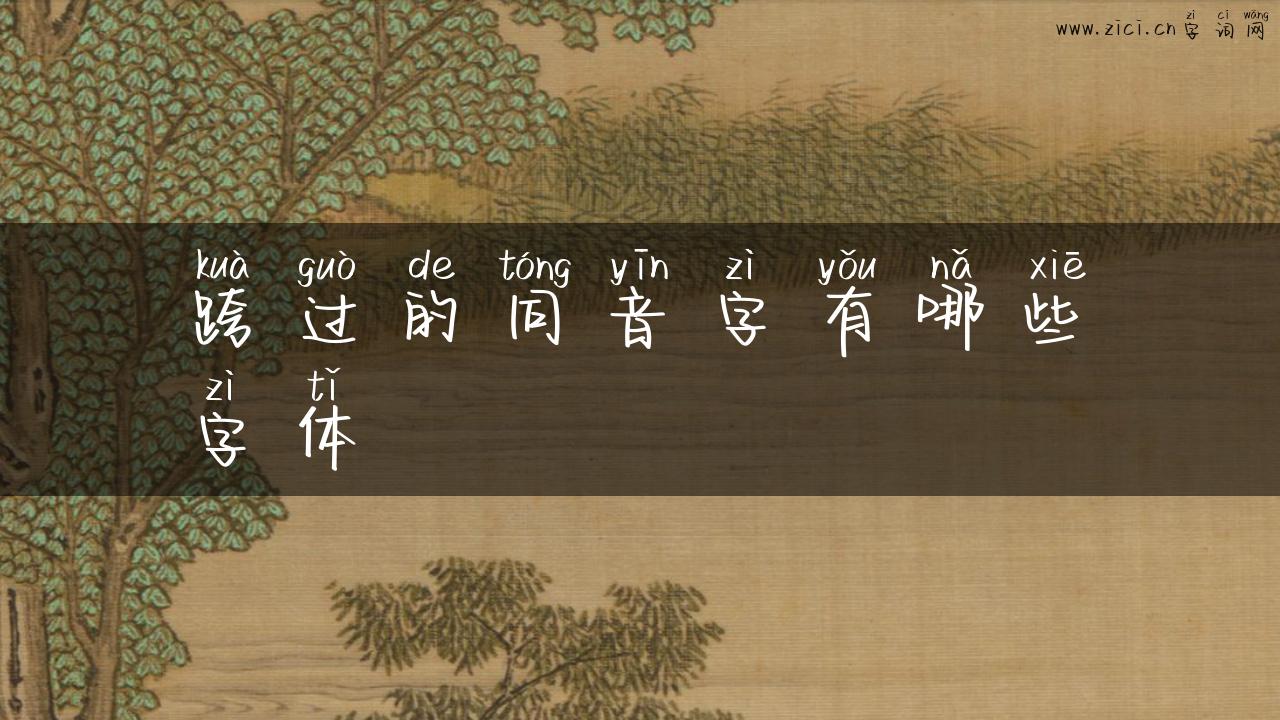 zì cí wǎng
www.zici.cn 字 词 网
kuà guò de tóng yīn zì yǒu nǎ xiē
跨 过 的 同 音 字 有 哪 些
zì tǐ
字 体